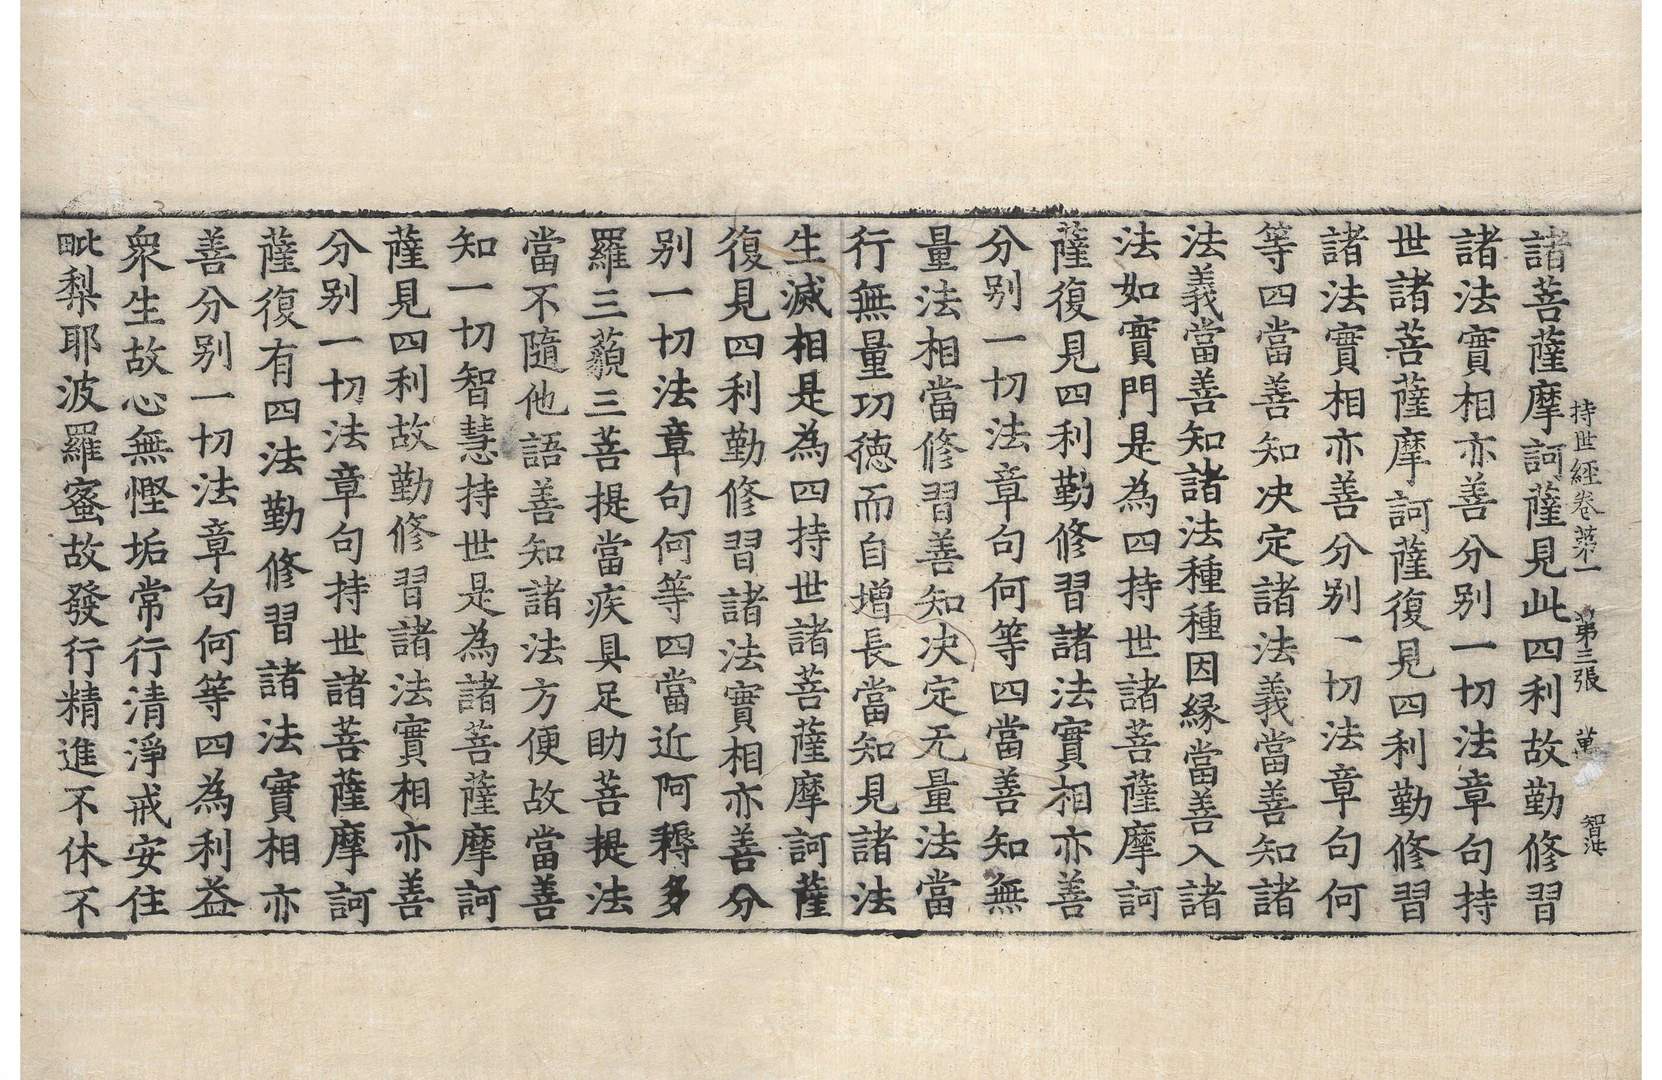 持世經卷第一 第三張 萬 智洪
諸菩薩摩訶薩見此四利故勤修習
諸法實相亦善分别一切法章句持
世諸菩薩摩訶薩復見四利勤修習
諸法實相亦善分别一切法章句何
等四當善知决定諸法義當善知諸
法義當善知諸法種種因縁當善入諸
法如實門是為四持世諸菩薩摩訶
薩復見四利勤修習諸法實相亦善
分别一切法章句何等四當善知無
量法相當修習善知决定无量法當
行無量功德而自增長當知見諸法
生滅相是為四持世諸菩薩摩訶薩
復見四利勤修習諸法實相亦善分
别一切法章句何等四當近阿耨多
羅三藐三菩提當疾具足助菩提法
當不隨他語善知諸法方便故當善
知一切智慧持世是為諸菩薩摩訶
薩見四利故勤修習諸法實相亦善
分别一切法章句持世諸菩薩摩訶
薩復有四法勤修習諸法實相亦
善分别一切法章句何等四為利益
衆生故心無慳垢常行清淨戒安住
毗梨耶波羅蜜故發行精進不休不